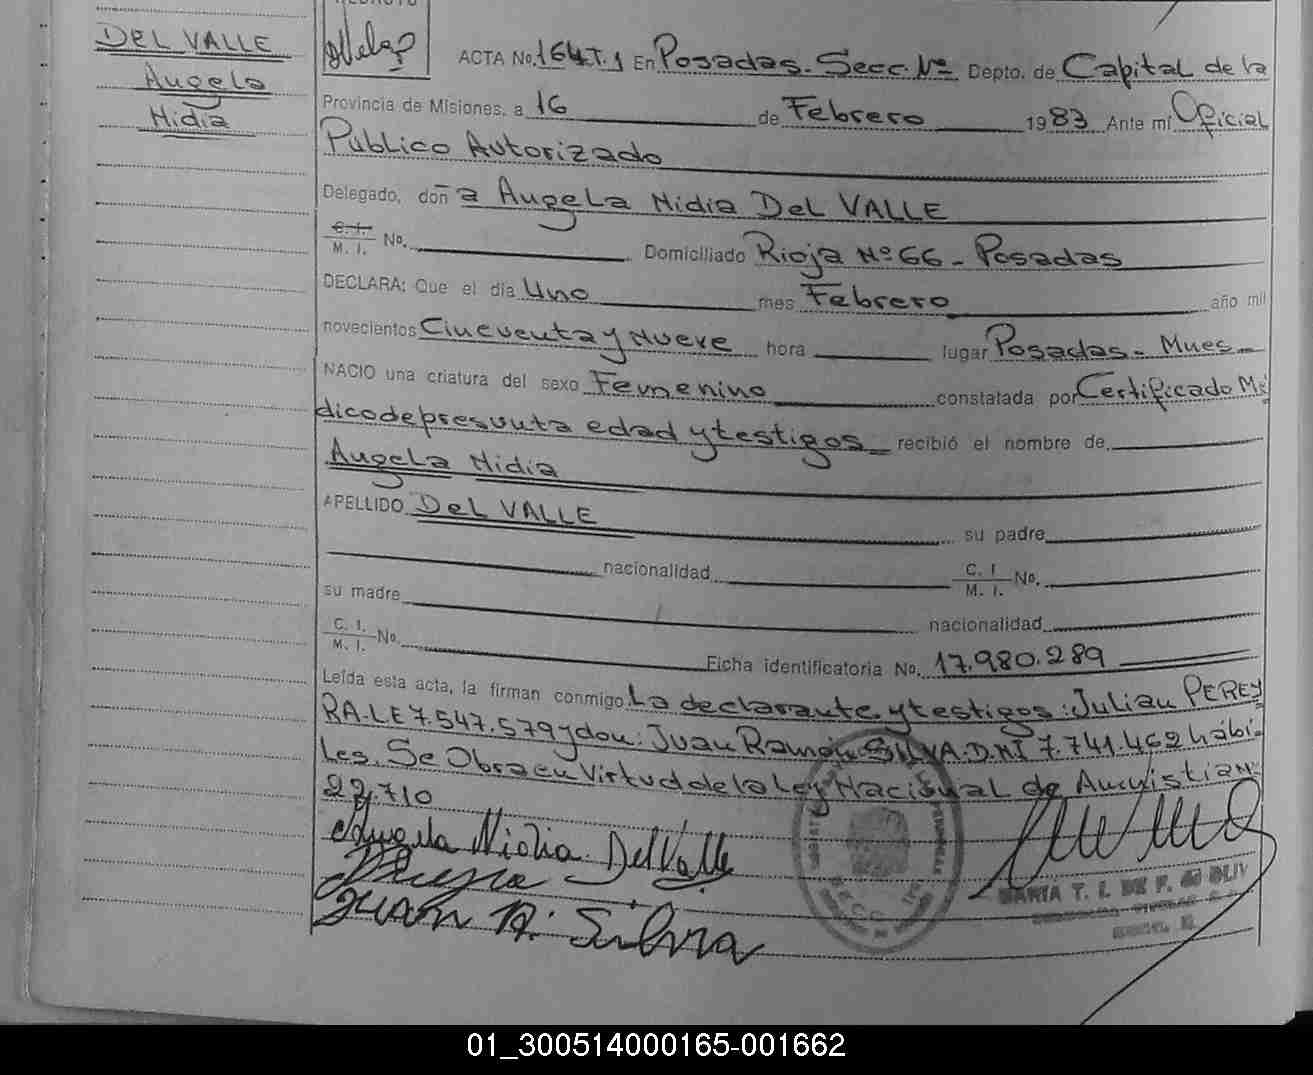 DEL VALLE
Angela
Nidia
ACTA No. 164 T. 1 En Posadas. Secc. Nº Depto. de Capital de la
Provincia de Misiones, a 16 de Febrero 1983 Ante mí Oficial
Publico Autorizado
Delegado, doña Angela Nidia Del VALLE
C. I.
M. I. No. Domiciliado Rioja Nº 66 - Posadas
DECLARA: Que el día Uno mes Febrero año mil
novecientos Cincuenta y Nueve hora lugar Posadas - Mnes
NACIO una criatura del sexo Femenino constatada por Certificado Mé
dico de presunta edad y testigos recibió el nombre de
Angela Nidia
APELLIDO Del VALLE su padre
nacionalidad C. I.
M. I. No.
su madre nacionalidad
C. I.
M. I. No. Ficha identificatoria No. 17.980.289
Leída esta acta, la firman conmigo La declarante y testigos: Julian PEREY
RA. LE 7.547.579 y don: Juan Ramón SILVA. D.N.I 7.741.462 hábi
les. Se Obra en Virtud de la Ley Nacional de Amnistia Nº
22.710
Angela Nidia Del Valle
Juan R. Silva
MARIA T. I. DE F.
01_300514000165-001662